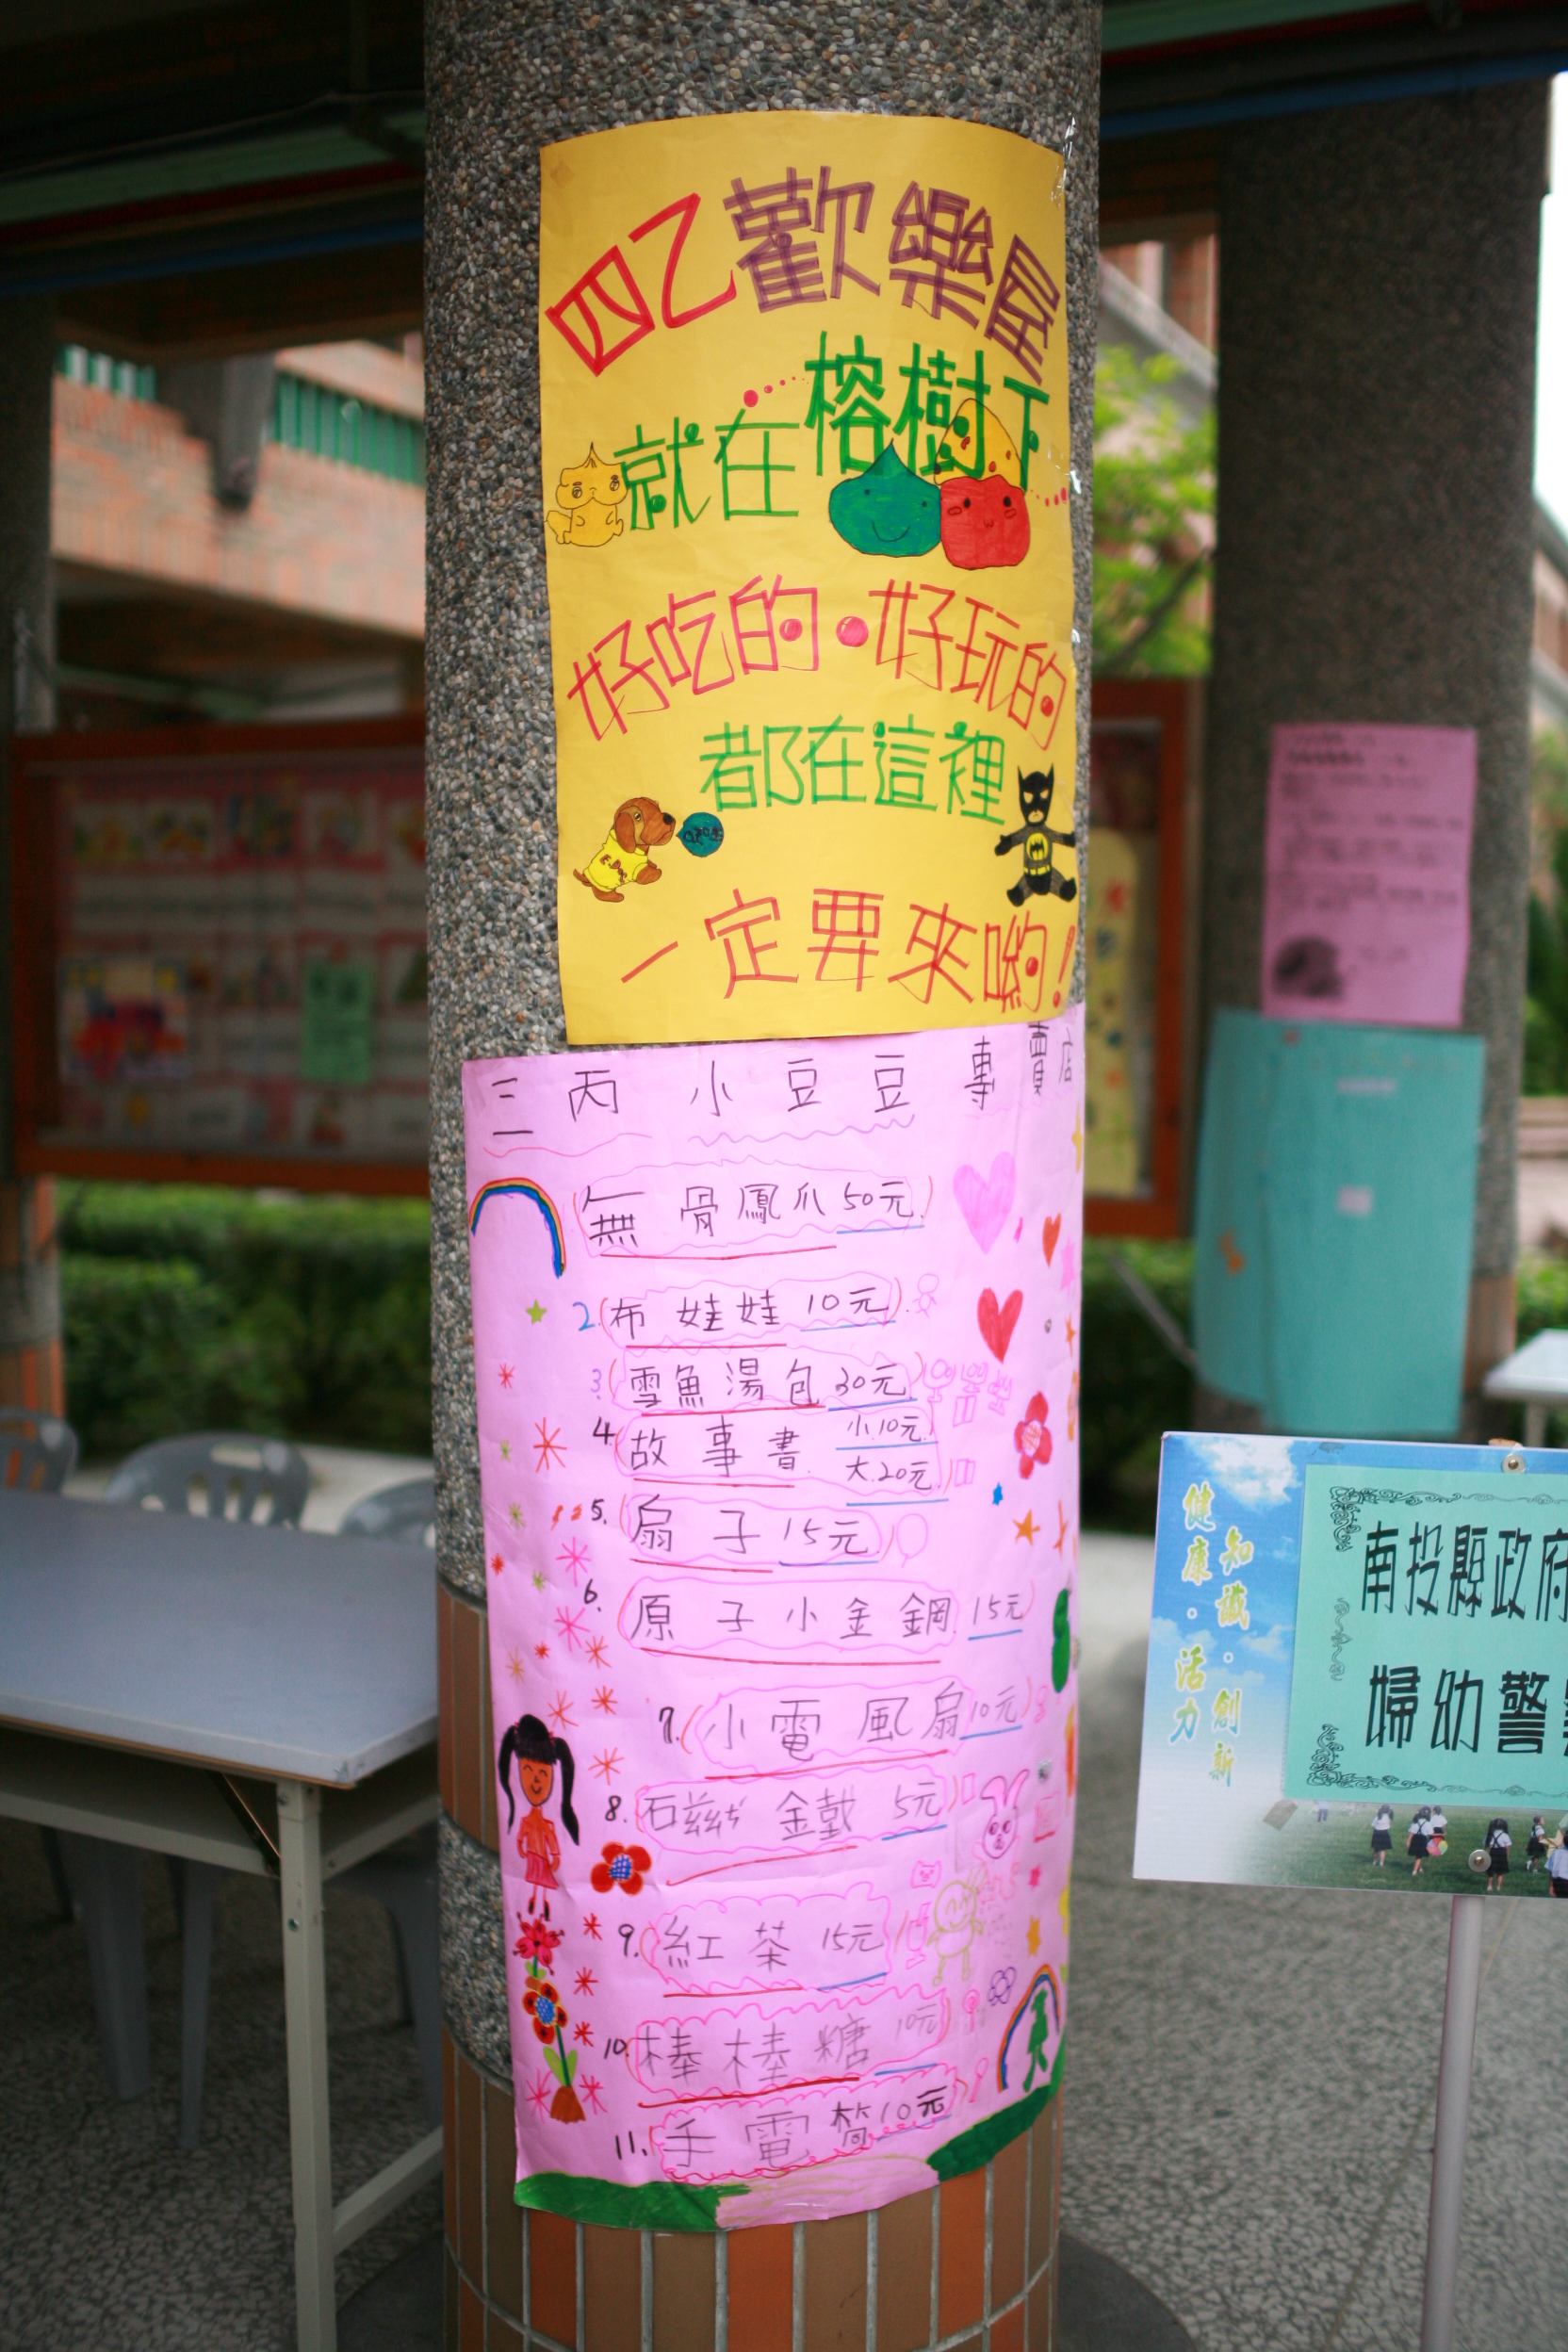 四乙歡樂屋
就在榕樹下
好吃的·好玩的
都在這裡
E-Dog
一定要來喲!
三丙 小豆豆 專賣店
無骨鳳爪 50元
2. 布娃娃 10元
3. 雪魚湯包 30元
4. 故事書 小.10元
大.20元
5. 扇子 15元
6. 原子小金鋼 15元
7. 小電風扇 10元
8. 5元
9. 紅茶 15元
10. 棒棒糖 10元
11. 手電筒 10元
健康·活力
知識·創新
南投縣政府
婦幼警